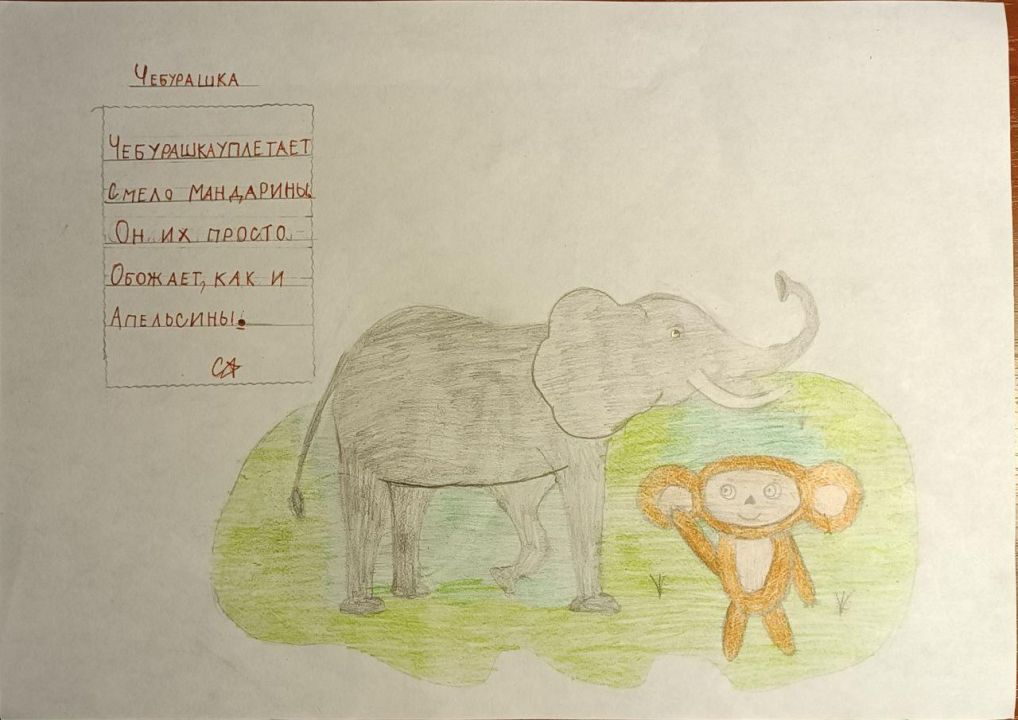 ЧЕБУРАШКА
ЧЕБУРАШКАУПЛЕТАЕТ
СМЕЛО МАНДАРИНЫ
ОН ИХ ПРОСТО
ОБОЖАЕТ, КАК И
АПЕЛЬСИНЫ.
СА